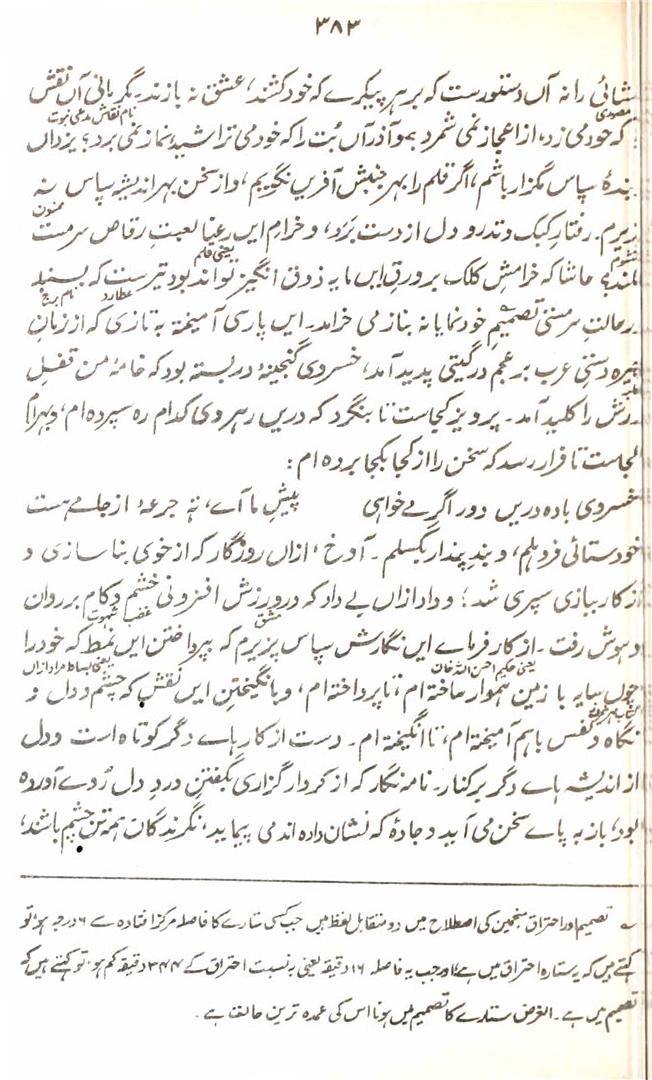 ۳۸۳
را نہ آں دستورست کہ بر ہر پیکرے کہ خود کشند، عشق نہ بازند۔ مگر مانی آں نقش
مصوری
نام نقاش مدعی نبوت
کہ خود می زد، از اعجاز نمی شمرد و ہمو آذر آں بُت را کہ خود می تراشید نماز نمی برد؟ یزداں
بندۂ سپاس گزار باشم، اگر قلم را بہر جنبش آفریں نگویم، و از سخن بہر اندیشہ سپاس نہ
ممنون
پزیرم۔ رفتارِ کبک و تدرو دل از دست بَرد، و خرامِ ایں رعنا لعبتِ رقاص سرمست
یعنی قلم
حاشا کہ خرامشِ کلک بر ورق ایں مایہ ذوق انگیز تواند بود تیرست کہ بسنبلہ
عطارد
نام برج
در حالتِ سرمستیِ تصمیم خودنمایانہ بناز می خرامد۔ ایں پارسی آمیختہ بہ تازی کہ از زمانِ
چیرہ دستیِ عرب بر عجم در گیتی پدید آمد، خسروی گنجینۂ در بستہ بود کہ خامۂ من قفلِ
غلبہ
درش را کلید آمد۔ پرویز کجاست تا بنگرد کہ دریں رہروی کدام رہ سپردہ ام، و بہرام
کجاست تا فرا رسد کہ سخن را از کجا بکجا بردہ ام:
خسروی بادہ دریں دور اگر مے خواہی پیشِ ما آے، تہِ جرعۂ از جامے ہست
خودستائی فرو ہلم، و بندِ پندار بگسلم۔ آوخ، ازاں روزگار کہ از خوی بناسازی و
از کار ببازی سپری شد؛ و داد ازاں بے داد کہ در ورزشِ افزونیِ خشم و کام بر روان
مشق
غضب
شہوت
و ہوش رفت۔ از کارفرماے ایں نگارش سپاس پزیرم کہ بپرداختنِ ایں نمط کہ خود را
یعنی حکیم احسن اللہ خان
یعنی بساط مراد ازاں
چوں سایہ با زمین ہموار ساختہ ام، تا پرداختہ ام، و بانگیختنِ ایں نقش کہ چشم و دل و
نگاہ و نفس باہم آمیختہ ام، تا انگیختہ ام۔ دست از کارہاے دگر کوتاہ است و دل
از اندیشہ ہاے دگر برکنار۔ نامہ نگار کہ از کردار گزاری بگفتنِ دردِ دل رُوے آوردہ
بود، باز بہ پاے سخن می آید و جادۂ کہ نشان دادہ اند می پیماید، نگرندگان ہمہ تن چشم باشند،
؎ تصمیم اور احتراق منجمین کی اصطلاح میں دو متقابل لفظ ہیں جب کسی ستارے کا فاصلہ مرکزِ آفتاب سے ۶ درجہ ہو، تو
کہتے ہیں کہ یہ ستارہ احتراق میں ہے، اور جب یہ فاصلہ ۱۶ دقیقہ یعنی بہ نسبت احتراق کے ۳۴۴ دقیقہ کم ہو، تو کہتے ہیں کہ
تصمیم میں ہے۔ الغرض ستارے کا تصمیم میں ہونا اس کی عمدہ ترین حالت ہے۔